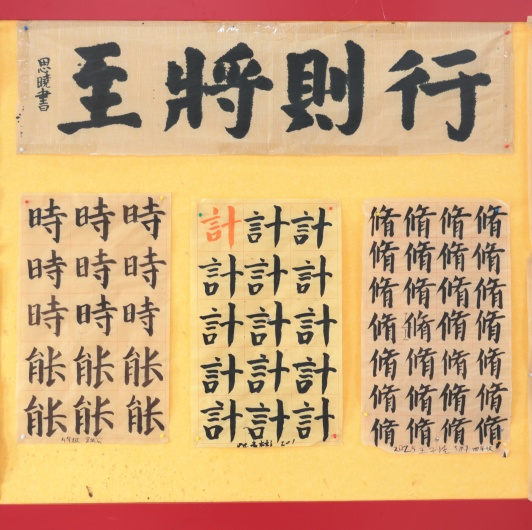 行則將至
思曉書
時時時
時時時
時時時
能能能
能能能
計計計
計計計
計計計
計計計
計計計
脩脩脩脩
脩脩脩脩
脩脩脩脩
脩脩脩脩
脩脩脩脩
脩脩脩脩
脩脩脩脩